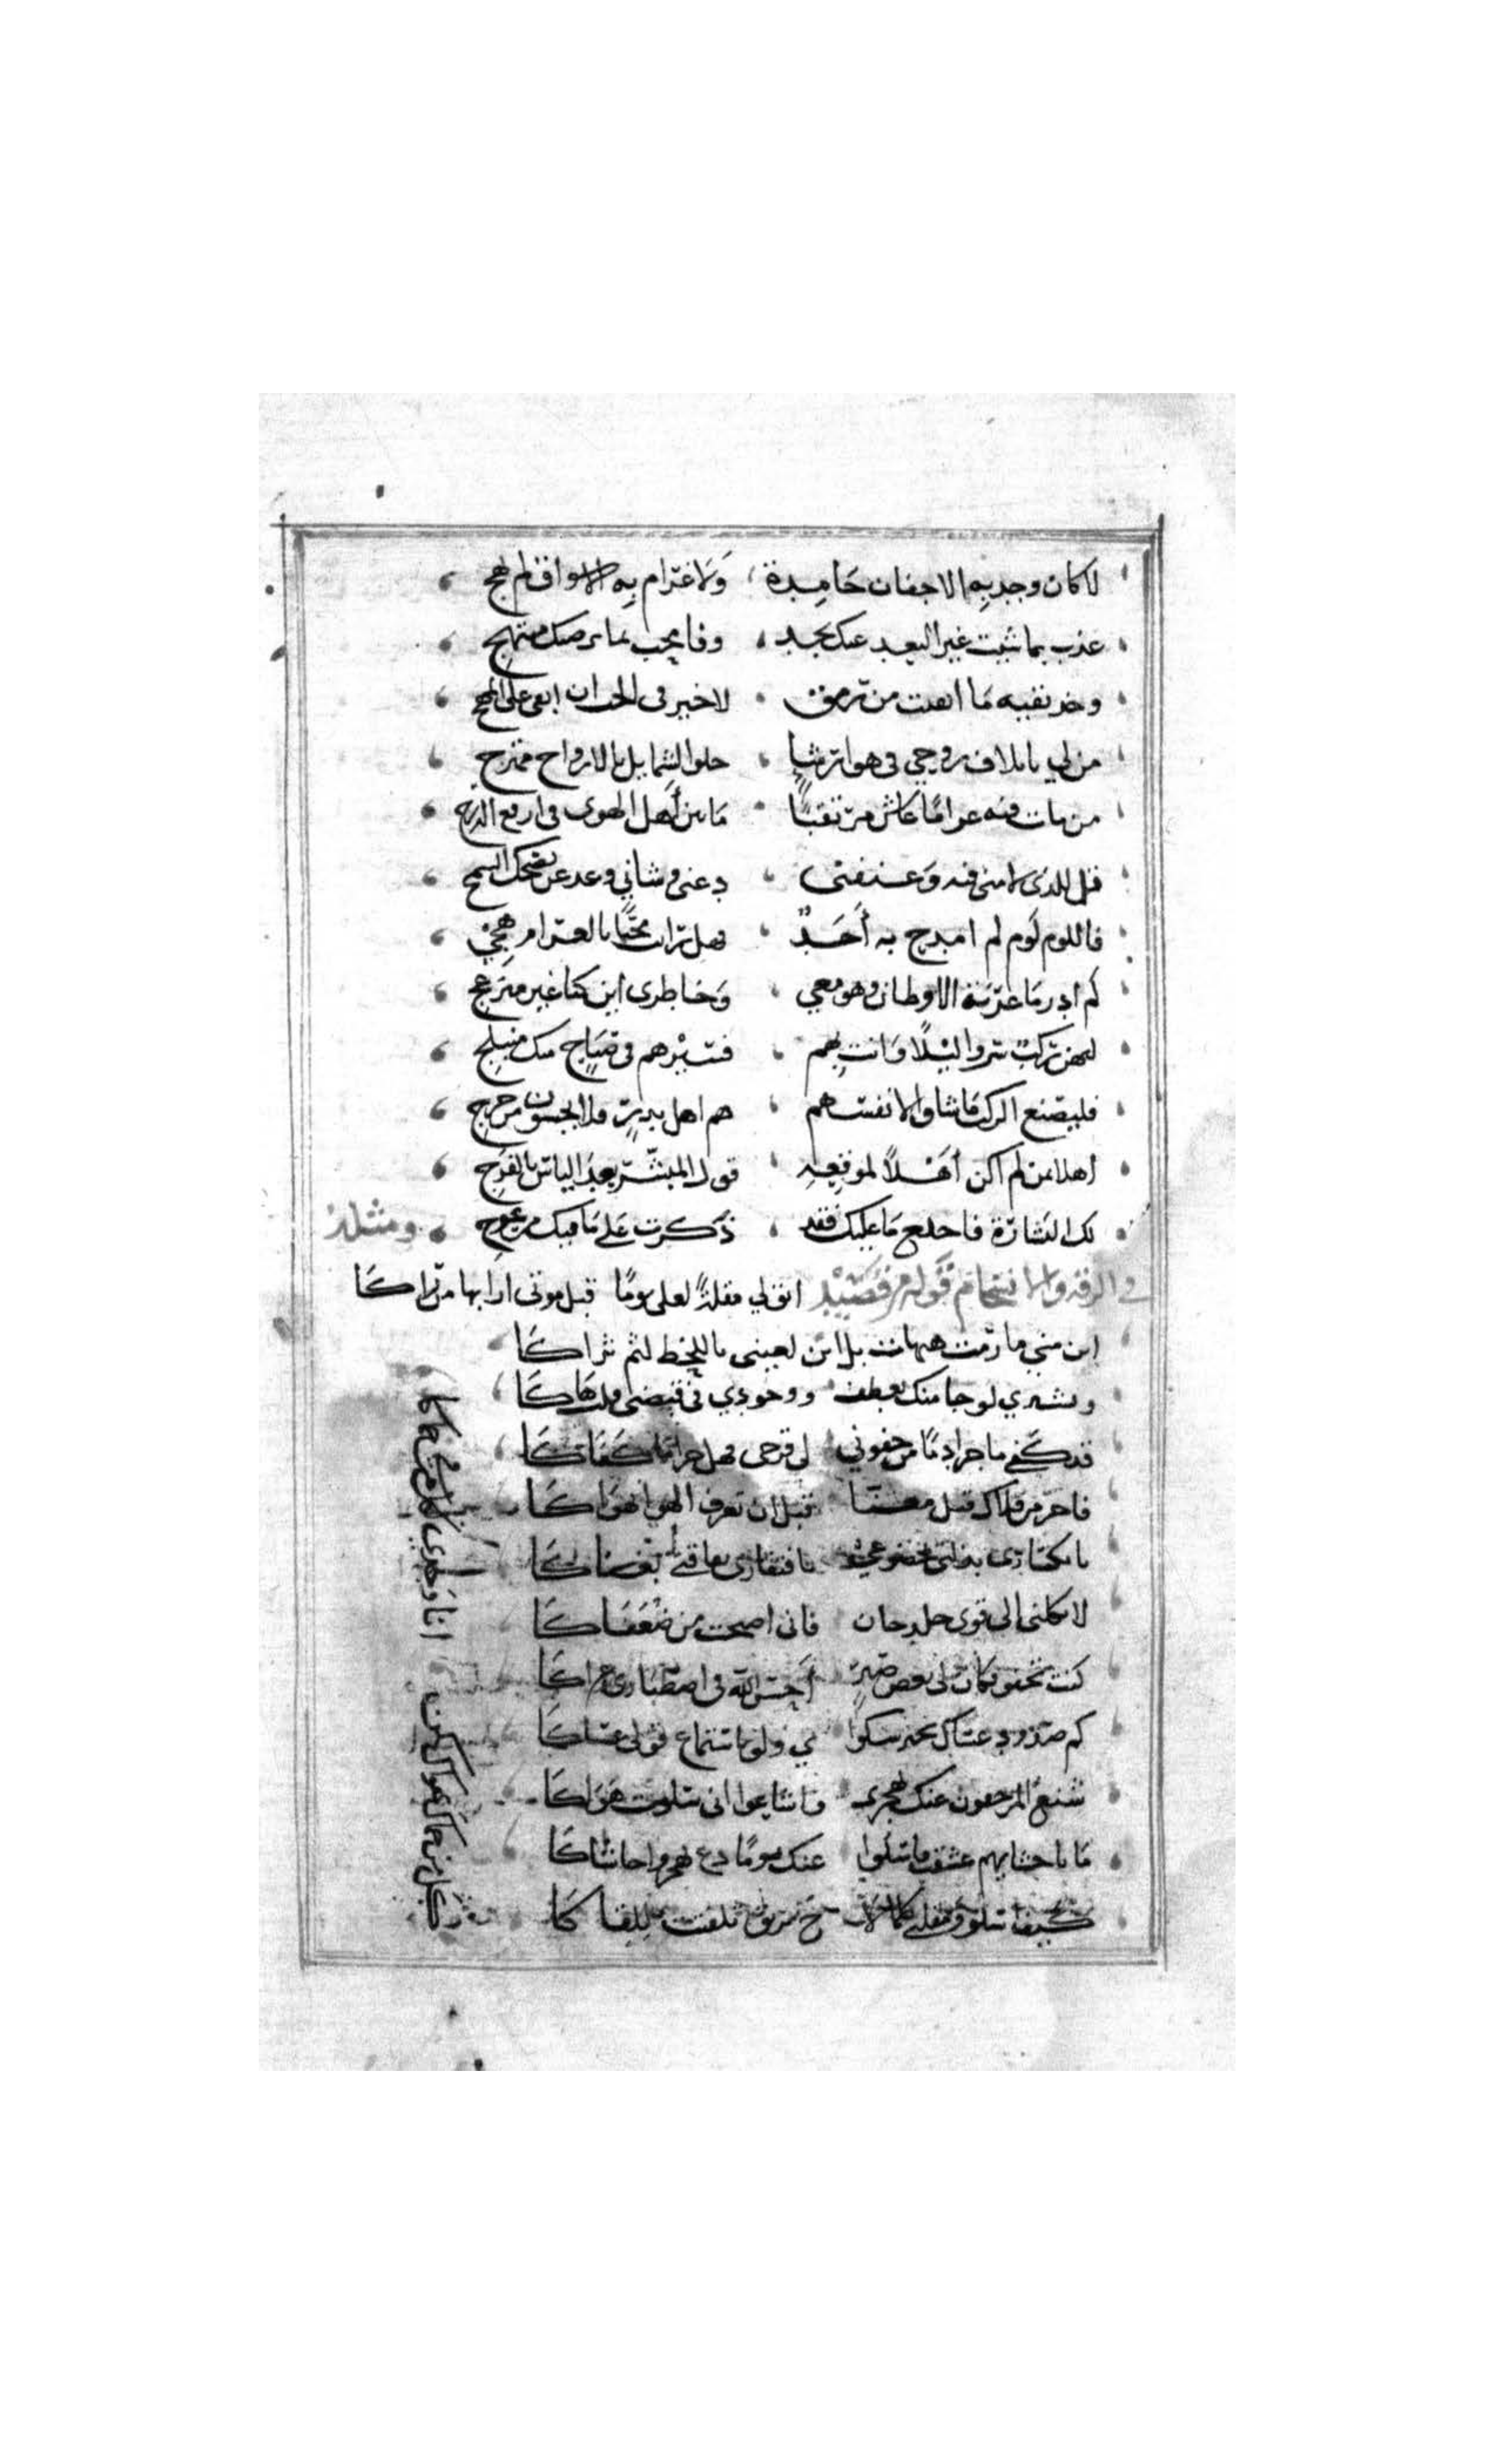 لا كان وجد به الاجفان جامدة ولا غرام به الاشواق لم تهج
عذب بما شئت غير البعد عنك تجد وفا محب بما يرضيك مبتهج
وخذ بقيه ما ابقيت من رمق لا خير في الحب ان ابقى على المهج
من لي باتلاف روحي في هوا رشا حلو الشمايل بالارواح ممتزج
من مات فيه غراما عاش مرتقيا ما بين أهل الهوى في ارفع الدرج
قل للذى لامنى فيه وعنفنى دعنى وشاني وعد عن نصحك السمج
فاللوم لوم لم امدح به أحد وهل رات محبا بالغرام هجي
لم ادر ما غربة الاوطان وهو معي وخاطرى اين كنا غير منزعج
ليهن ركب سروا ليلا وانت بهم فسيرهم في صباح منك منبلج
فليصنع الركب ما شاوا لانفسهم هم اهل بدر فلا يخشون من حرج
أهلا بمن لم اكن أهلا لموقعه قول المبشر بعد الياس بالفرج
لك البشارة فاخلع ما عليك فقد ذكرت على ما فيك من عوج ومثله
في الرقه والانسجام قوله من قصيد ابق لي مقلة لعلي يوما قبل موتى ارا بها من راكا
اين مني ما رمت هيهات بل اين لعيني باللحظ لثم ثراكا
وبشيري لو جا منك بعطف ووجودي في قبضتى قلت هاكا
قد كفى ما جرا دما من جفوني لي قرحى فهل جرا ما كفاكا
فاجر من قلاك فيك معنا قبل ان تعرف الهوا يهواكا
بانكسارى بذلتي بخضوعي بافتقارى بفاقتي بغناكا
لا تكلنى الى قوى جلد خان فانى اصبحت من ضعفاكا
كنت تجفو وكان لى بعض صبر أحسن الله في اصطبارى عزاكا
كم صدود عساك ترحم شكوا ي ولو باستماع قولى عساكا
شنع المرجفون عنك بهجرى واشاعوا انى سلوت هواكا
ما باحشايهم عشقت فاسلوا عنك يوما دع يهجروا حاشاكا
كيف اسلو ومقلتي كلما لا ح بريق تلفتت للقاكا
كل من في حماك يهواك لكن انا وحدى بكل من في حماكا